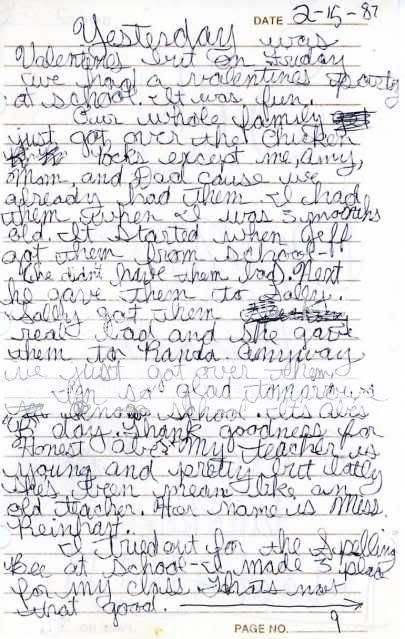 DATE 2-15-87
Yesterday was
Valentines but on Friday
we had a valentines party
at school. It was fun.
Our whole family
just got over the chicken
pocks except me, Amy,
Mom, and Dad cause we
already had them. I had
them when I was 3 months
old. It started when Jeff
got them from school-
(he didn't have them bad. Next
he gave them to Sally.
Sally got them
real bad and she gave
them to Randa. Anyway
we just got over them.
I'm so glad tomarow is
no school. Its Abes
B day. Thank goodness for
Honest Abe. My teacher is
young and pretty but lately
she's been mean like an
old teacher. Her name is Miss.
Reinhart.
I tried out for the Spelling
Bee at school-I made 3 place
for my class. Thats not
that good.
PAGE NO. 9